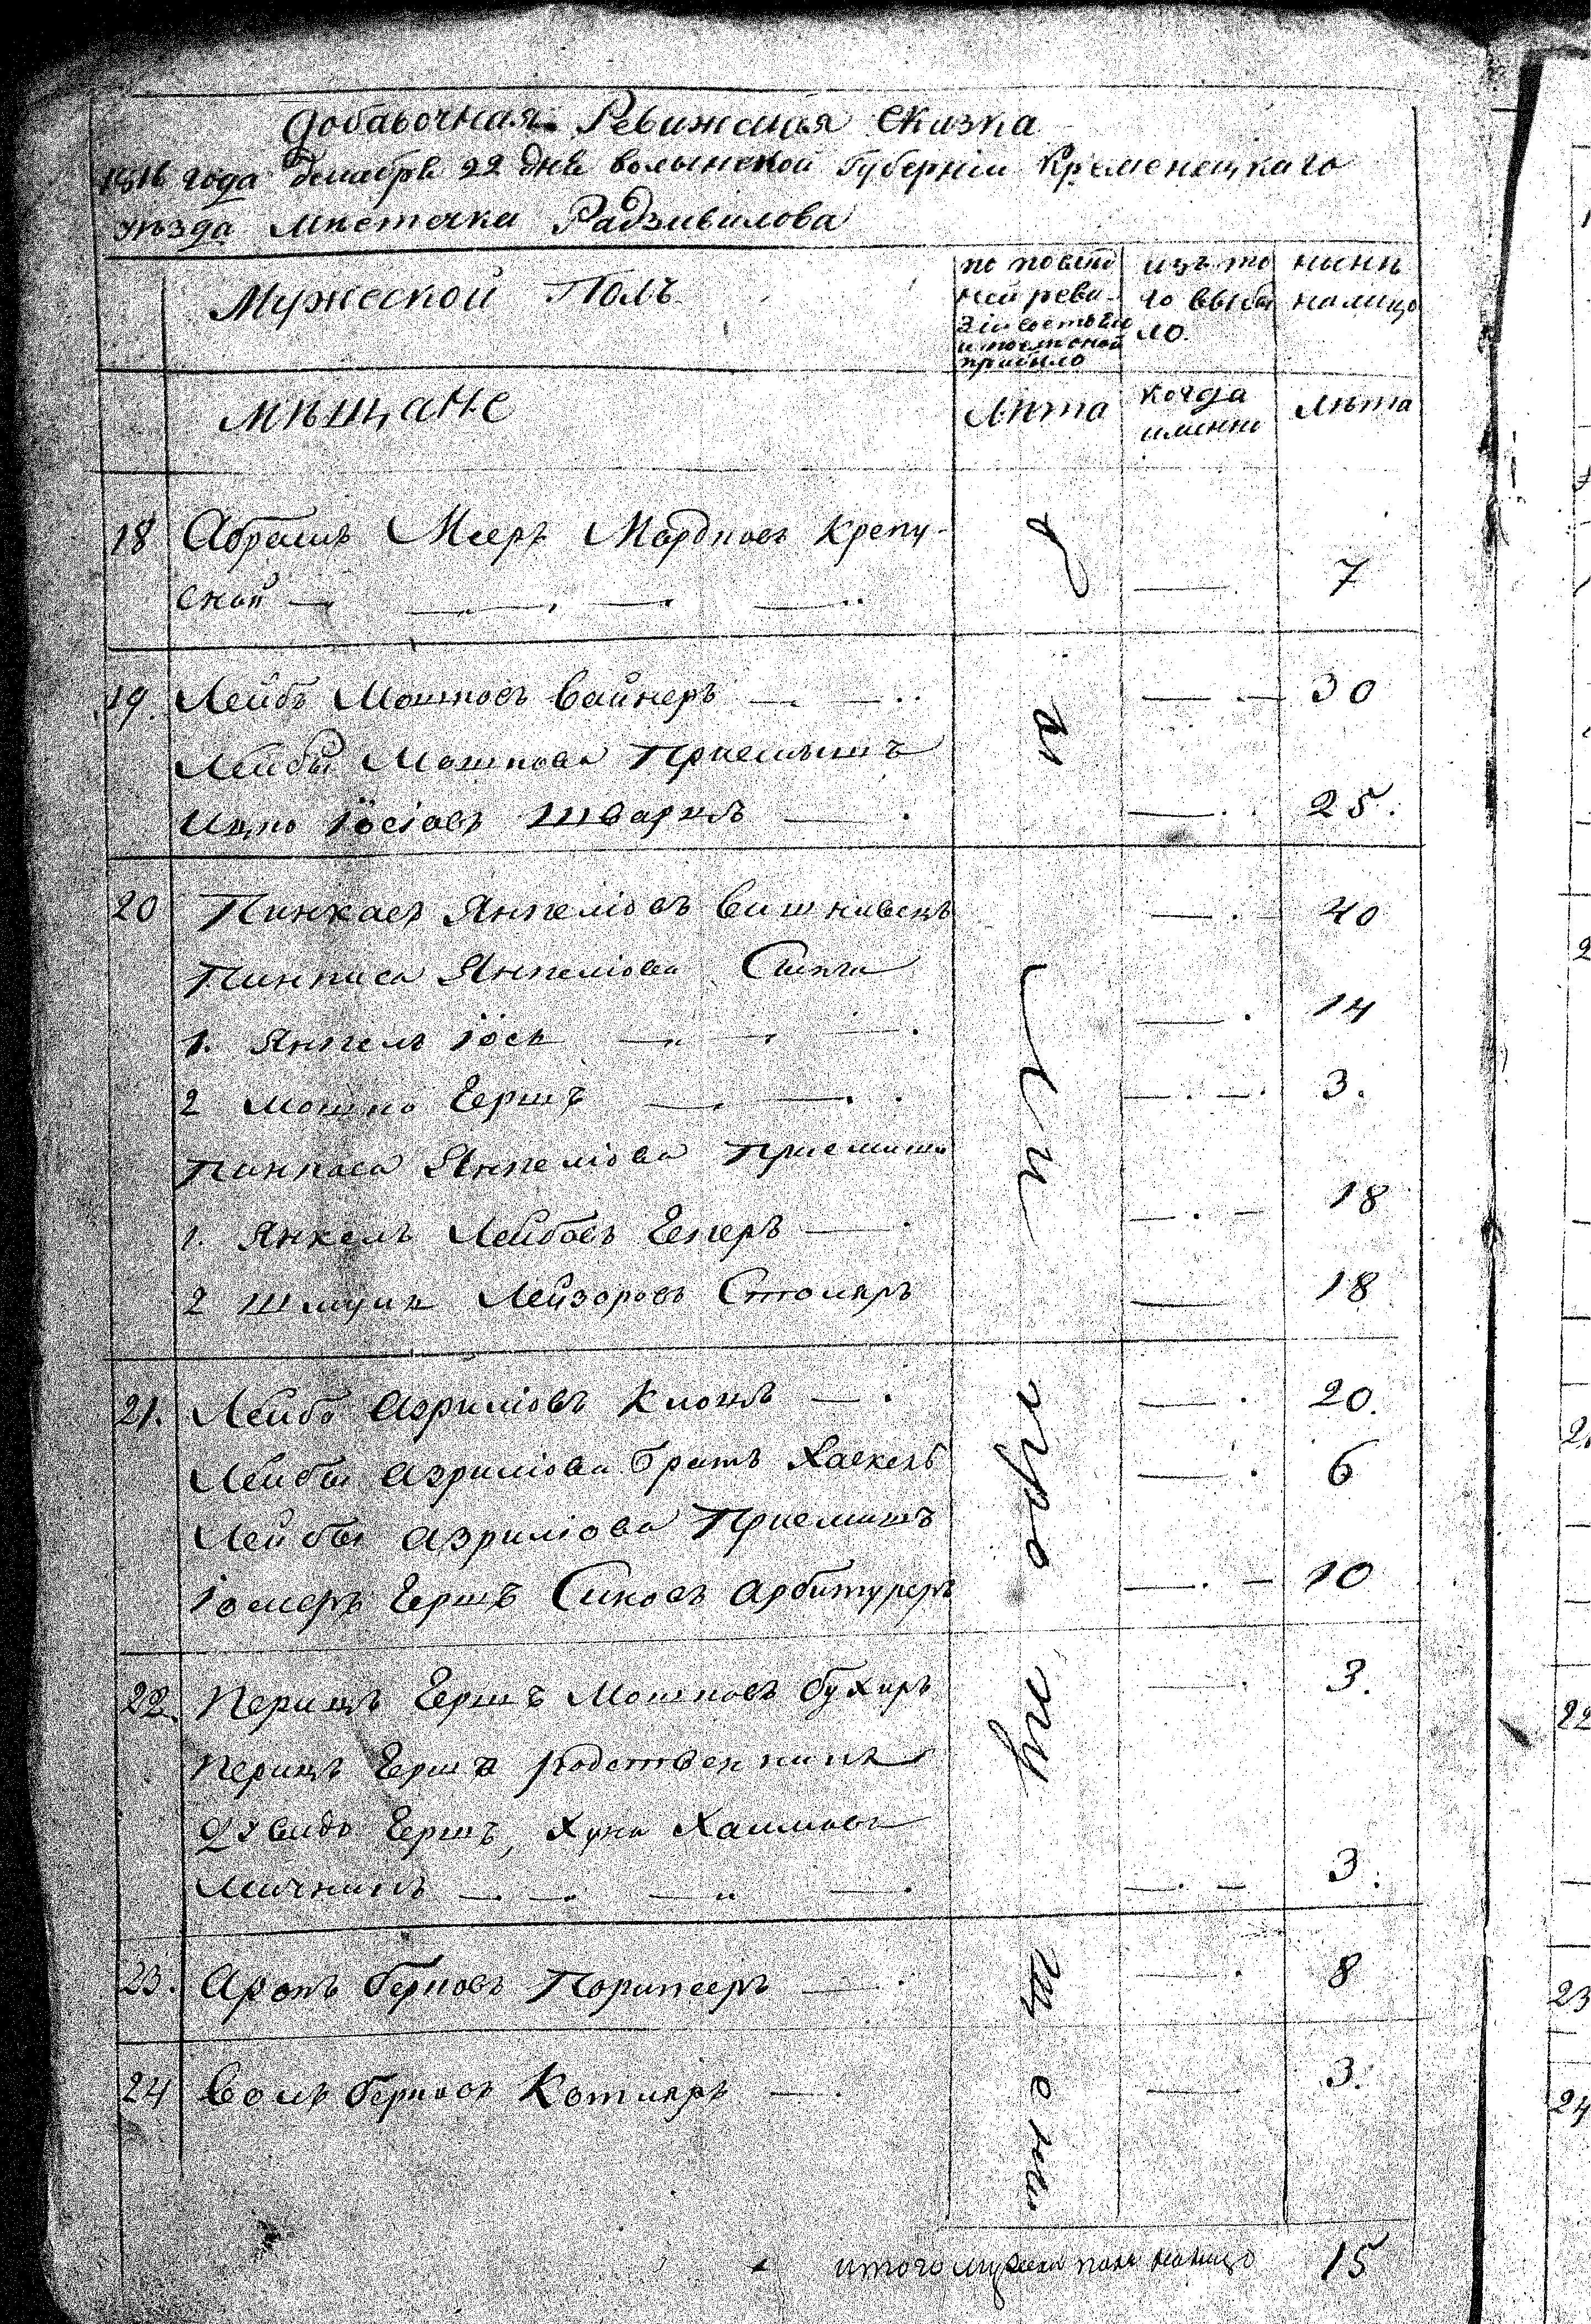 Добавочная Ревижская Сказка
1816 года декабря 22 дня волынской Губернїи Кременецкаго
уѣзда мѣстечка Радзивилова
Мужеской Полъ
по послѣд
ней реви-
зїи состояло
и после оной
прибыло
изъ то
го выбы
ло.
нынѣ
налицо
мѣщане
Лѣта
когда
имянно
Лѣта
18 Абрамъ Мееръ Мордковъ Крепу-
ской 7
19. Лейбъ Мошковъ Вайнеръ 30
Лейбы Мошкова Приемышъ
Ицко Їосїовъ Шварцъ 25.
20 Пинкасъ Янкелїовъ Вишнивецъ 40
Пинкаса Янкелїова Сынга
1. Янкель Їось 14
2 Мошко Гершъ 3.
Пинкаса Янкелїова Приемыши
1. Янкель Лейбовъ Гекеръ 18
2 Шмуль Лейзоровъ Столяръ 18
21. Лейба Азрилїовъ Клоцъ 20.
Лейбы Азрилїова братъ Хаскель 6
Лейбы Азрилїова Приемышъ
Гершъ Сиковъ 10
22. Перецъ Гершъ Мошковъ Бухиръ 3.
Перецъ Герша родственникъ
Давидъ Гершъ, Хуна Хаимовъ
3.
23. Аронъ Берковъ 8
24 Волъ Берковъ Котляръ 3.
итого мужеска пола налицо 15
18
19
20
21
22
23
24